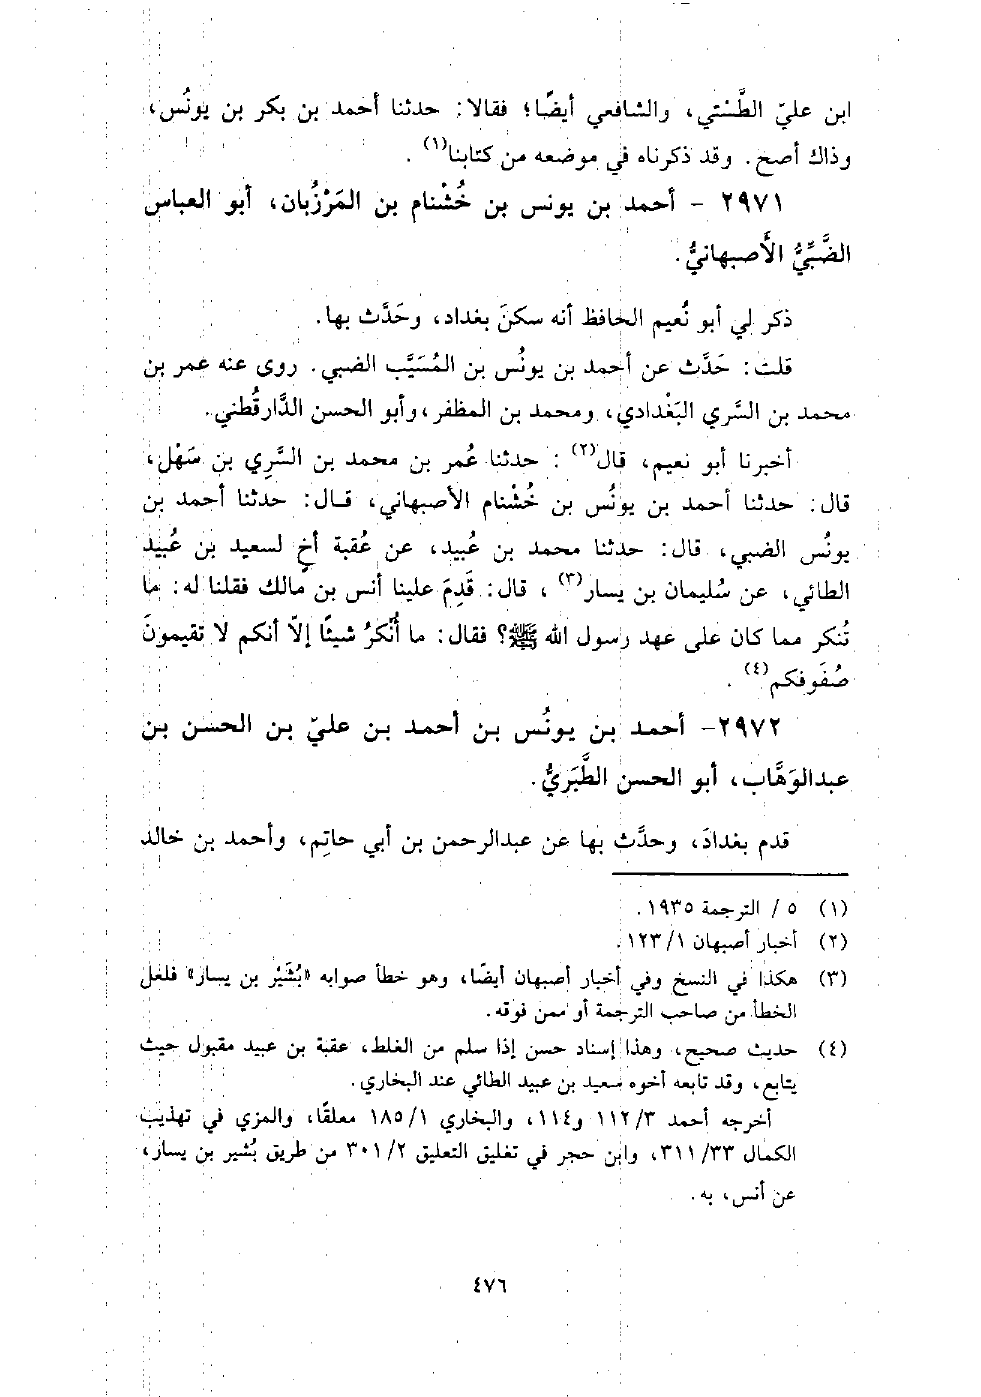 ابن عليّ الطَّسْتي، والشافعي أيضًا؛ فقالا: حدثنا أحمد بن بكر بن يونُس،
وذاك أصح. وقد ذكرناه في موضعه من كتابنا(١) .
٢٩٧١ - أحمد بن يونس بن خُشْنام بن المَرْزُبان، أبو العباس
الضَّبِّيُّ الأصبهانيُّ.
ذكر لي أبو نُعيم الحافظ أنه سكنَ بغداد، وحَدَّث بها.
قلت: حَدَّث عن أحمد بن يونُس بن المُسَيَّب الضبي. روى عنه عمر بن
محمد بن السَّري البَغْدادي، ومحمد بن المظفر، وأبو الحسن الدَّارقُطني.
أخبرنا أبو نعيم، قال(٢) : حدثنا عُمر بن محمد بن السَّرِي بن سَهْل،
قال: حدثنا أحمد بن يونُس بن خُشْنام الأصبهاني، قال: حدثنا أحمد بن
يونُس الضبي، قال: حدثنا محمد بن عُبيد، عن عُقبة أخٍ لسعيد بن عُبيد
الطائي، عن سُليمان بن يسار(٣) ، قال: قَدِمَ علينا أنس بن مالك فقلنا له: ما
تُنكر مما كان على عهد رسول الله ﷺ؟ فقال: ما أُنْكرُ شيئًا إلاّ أنكم لا تقيمونَ
صُفَوفكم(٤) .
٢٩٧٢- أحمد بن يونُس بن أحمد بن عليّ بن الحسن بن
عبدالوَهَّاب، أبو الحسن الطَّبَريُّ.
قدم بغدادَ، وحدَّث بها عن عبدالرحمن بن أبي حاتِم، وأحمد بن خالد
(١) ٥ / الترجمة ١٩٣٥.
(٢) أخبار أصبهان ١/ ١٢٣.
(٣) هكذا في النسخ وفي أخبار أصبهان أيضًا، وهو خطأ صوابه «بُشَيْر بن يسار» فلعل
الخطأ من صاحب الترجمة أو ممن فوقه.
(٤) حديث صحيح، وهذا إسناد حسن إذا سلم من الغلط، عقبة بن عبيد مقبول حيث
يتابع، وقد تابعه أخوه سعيد بن عبيد الطائي عند البخاري.
أخرجه أحمد ٣/ ١١٢ و١١٤، والبخاري ١/ ١٨٥ معلقًا، والمزي في تهذيب
الكمال ٣٣/ ٣١١، وابن حجر في تغليق التعليق ٢/ ٣٠١ من طريق بُشير بن يسار،
عن أنس، به.
٤٧٦